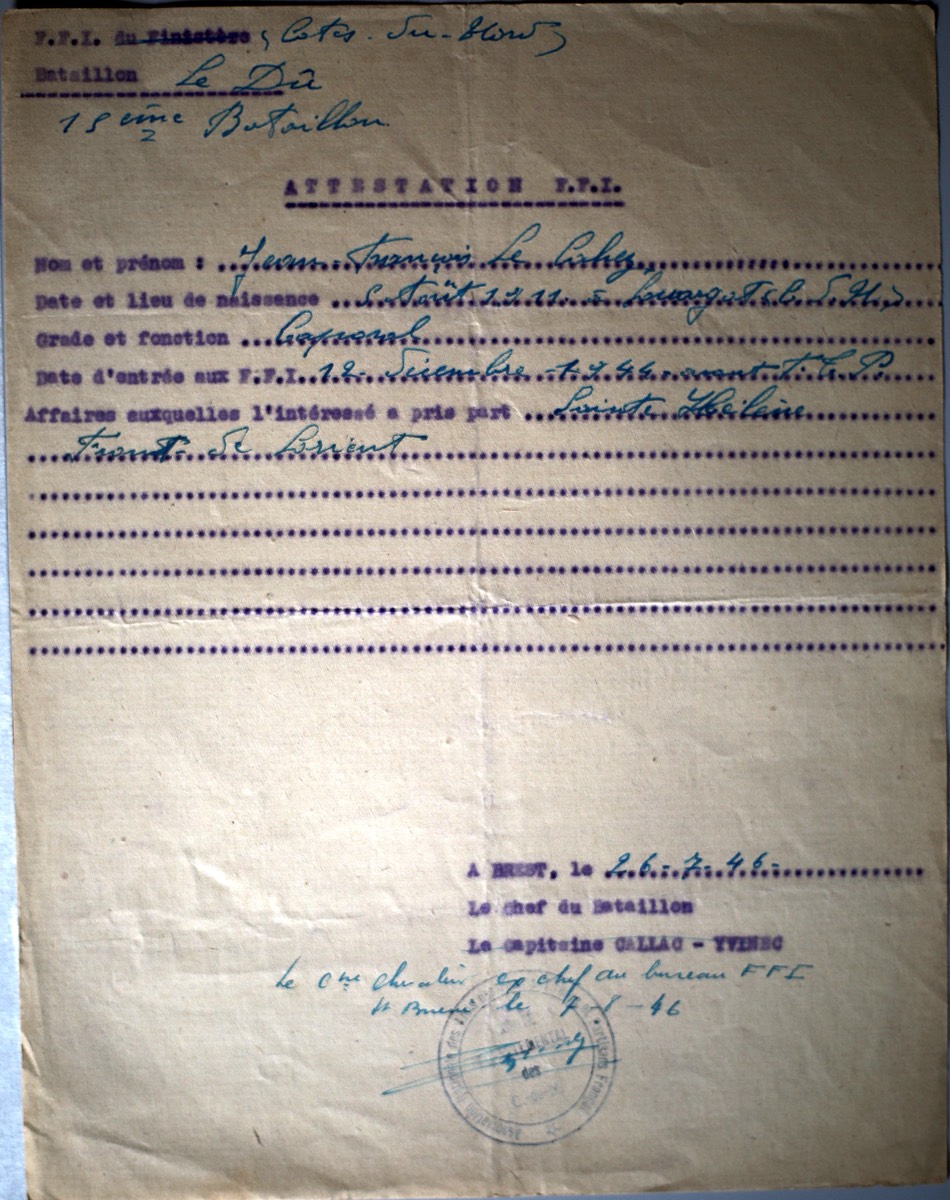 F.F.I. du Finistère (Côtes-du-Nord)
Bataillon Le Dû
15ème Bataillon
ATTESTATION F.F.I.
Nom et prénom : Jean-François Le Cahez
Date et lieu de naissance Août 1911 = Louargat (C. d. N.)
Grade et fonction Caporal
Date d'entrée aux F.F.I. 12 Décembre 1944 - avant F.T.P.
Affaires auxquelles l'intéressé a pris part Sainte Hélène
Front de Lorient
A BREST, le 26-7-46-
Le Chef du Bataillon
Le Capitaine CALLAC - YVINEC
Le Cne Chevalier ex chef du bureau FFI
St Brieuc le 7-8-46
des